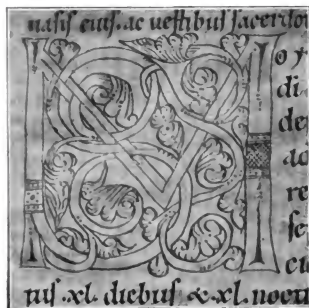 uasis eius. ac uestibus sacerdo
M oy
di
de
re
se
tus .xl. diebus &.xl. noctu